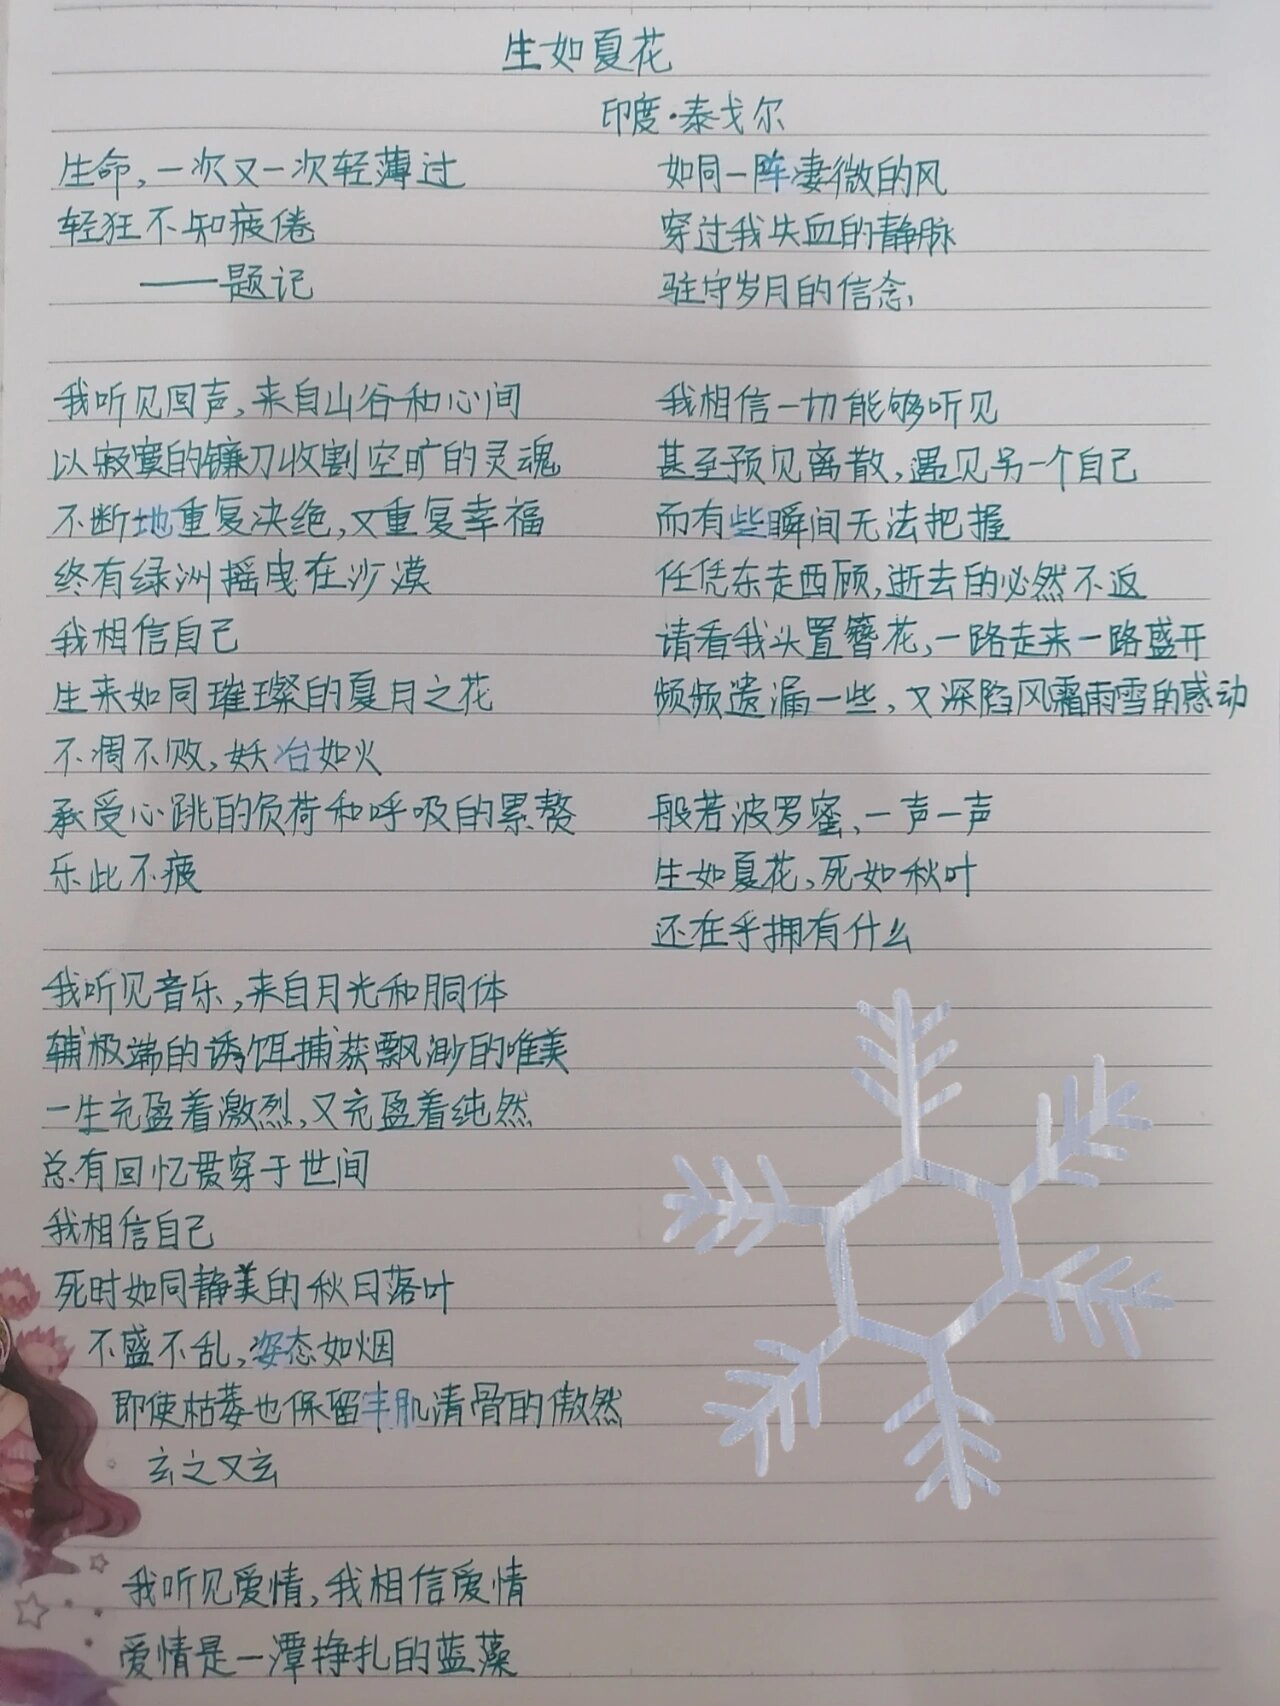 生如夏花
印度·泰戈尔
生命,一次又一次轻薄过
轻狂不知疲倦
——题记
我听见回声,来自山谷和心间
以寂寞的镰刀收割空旷的灵魂
不断地重复决绝,又重复幸福
终有绿洲摇曳在沙漠
我相信自己
生来如同璀璨的夏月之花
不凋不败,妖冶如火
承受心跳的负荷和呼吸的累赘
乐此不疲
我听见音乐,来自月光和胴体
辅极端的诱饵捕获飘渺的唯美
一生充盈着激烈,又充盈着纯然
总有回忆贯穿于世间
我相信自己
死时如同静美的秋日落叶
不盛不乱,姿态如烟
即使枯萎也保留丰肌清骨的傲然
玄之又玄
我听见爱情,我相信爱情
爱情是一潭挣扎的蓝藻
如同一阵凄微的风
穿过我失血的静脉
驻守岁月的信念,
我相信一切能够听见
甚至预见离散,遇见另一个自己
而有些瞬间无法把握
任凭东走西顾,逝去的必然不返
请看我头置簪花,一路走来一路盛开
频频遗漏一些,又深陷风霜雨雪的感动
般若波罗蜜,一声一声
生如夏花,死如秋叶
还在乎拥有什么